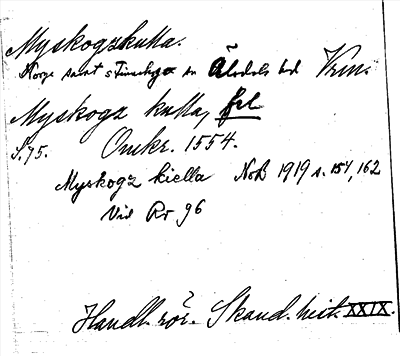 Myskogzkulla.
Norge samt Älvdals hd Vrm.
Myskogz kulla, frl
S. 75. Omkr. 1554.
Myskogz kiella NoB 1919 s. 154, 162
Vid Rr 96
Handl. rör. Skand. hist. XXIX.